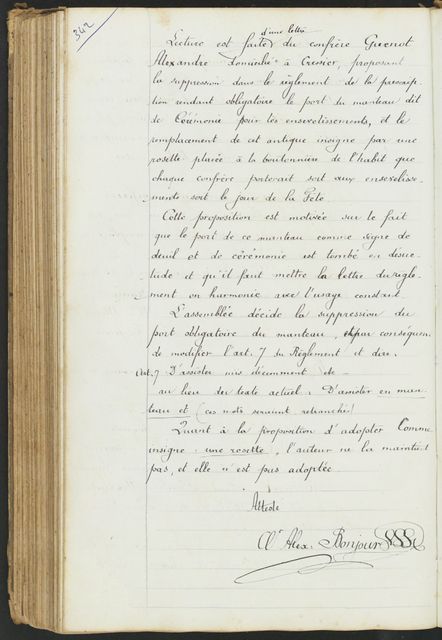 342
d'une lettre
Lecture est faite du confrère Guenot
Alexandre domicilié à Cressier, proposant
la suppression dans le règlement de la prescrip
tion rendant obligatoire le port du manteau dit
de Cérémonie pour les ensevelissements, et le
remplacement de cet antique insigne par une
rosette placée à la boutonnière de l'habit que
chaque confrère porterait soit aux ensevelisse-
ments soit le jour de la Fête.
Cette proposition est motivée sur le fait
que le port de ce manteau comme signe de
deuil et de cérémonie est tombé en désué-
tude et qu'il faut mettre la lettre du règle-
ment en harmonie avec l'usage constant.
L'assemblée décide la suppression du
port obligatoire du manteau, et par conséquent
de modifier l'art. 7 du Règlement et dire.
Art. 7 D'assister mis décemment de –
au lieu du texte actuel : D'assister en man-
teau et (ces mots seraient retranchés)
Quant à la proposition d'adopter comme
insigne : une rosette, l'auteur ne la maintient
pas, et elle n'est pas adoptée
Atteste
Alex. Bonjour